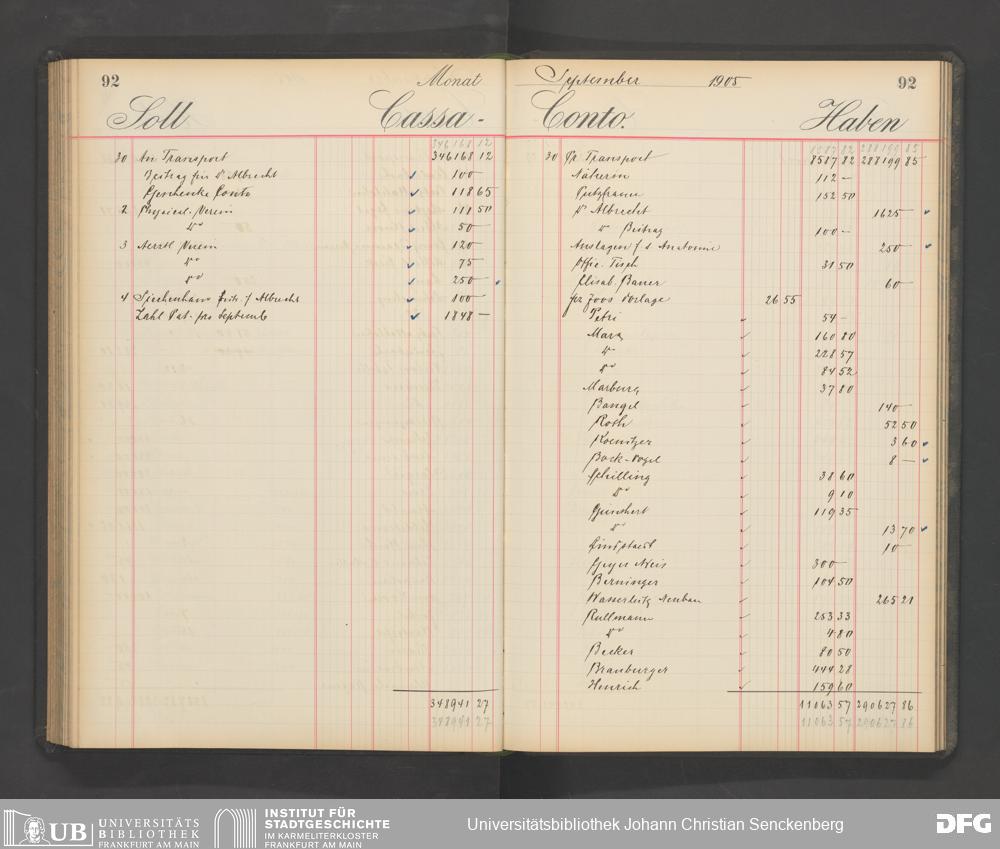 92 Monat
Soll Cassa-
346168 12
30 An Transport 346168 12
Beitrag für Dr Albrecht 100 —
Geschenke Conto 118 65
2 Physical. Verein 111 50
do 50 —
3 Aerztl Verein 120 —
do 75 —
do 250 —
4 Siechenhaus f Albrecht 100 —
Zahl Pat. pro Septemb 1848 —
348941 27
348941 27
September 1905 92
Conto. Haben
8587 82 288199 85
30 Pr Transport 8587 82 288199 85
Näherin 112 —
Putzfrauen 152 50
Dr Albrecht 1625 —
do Beitrag 100 —
Auslagen f. d. Anatomie 250 —
Offic. Tisch 31 50
Elisab. Bauer 60 —
für Joos Vorlage 26 55
Petri 54 —
Marx 160 80
do 228 57
do 84 52
Marburg 37 80
Bangel 140 —
Roth 52 50
Koenitzer 3 60
Bock-Vogel 8 —
Schilling 38 60
do 9 10
Günchert 119 35
do 13 70
Lindstaedt 10 —
Geyer 300 —
Berninger 104 50
Wasserleitg Neubau 265 21
Rullmann 253 33
do 4 80
Becker 80 50
Braunburger 444 28
Henrich 159 60
11063 57 290627 86
11063 57 290627 86
UB UNIVERSITÄTS
BIBLIOTHEK
FRANKFURT AM MAIN
INSTITUT FÜR
STADTGESCHICHTE
IM KARMELITERKLOSTER
FRANKFURT AM MAIN
Universitätsbibliothek Johann Christian Senckenberg
DFG